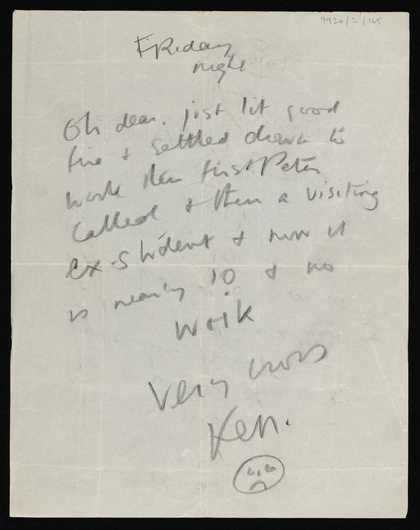 9920/2/125
Friday
night
Oh dear. just lit good
fire & settled down to
work then first Peter
called & then a visiting
ex-student & now it
is nearly 10 & no
work
Very cross
Ken.